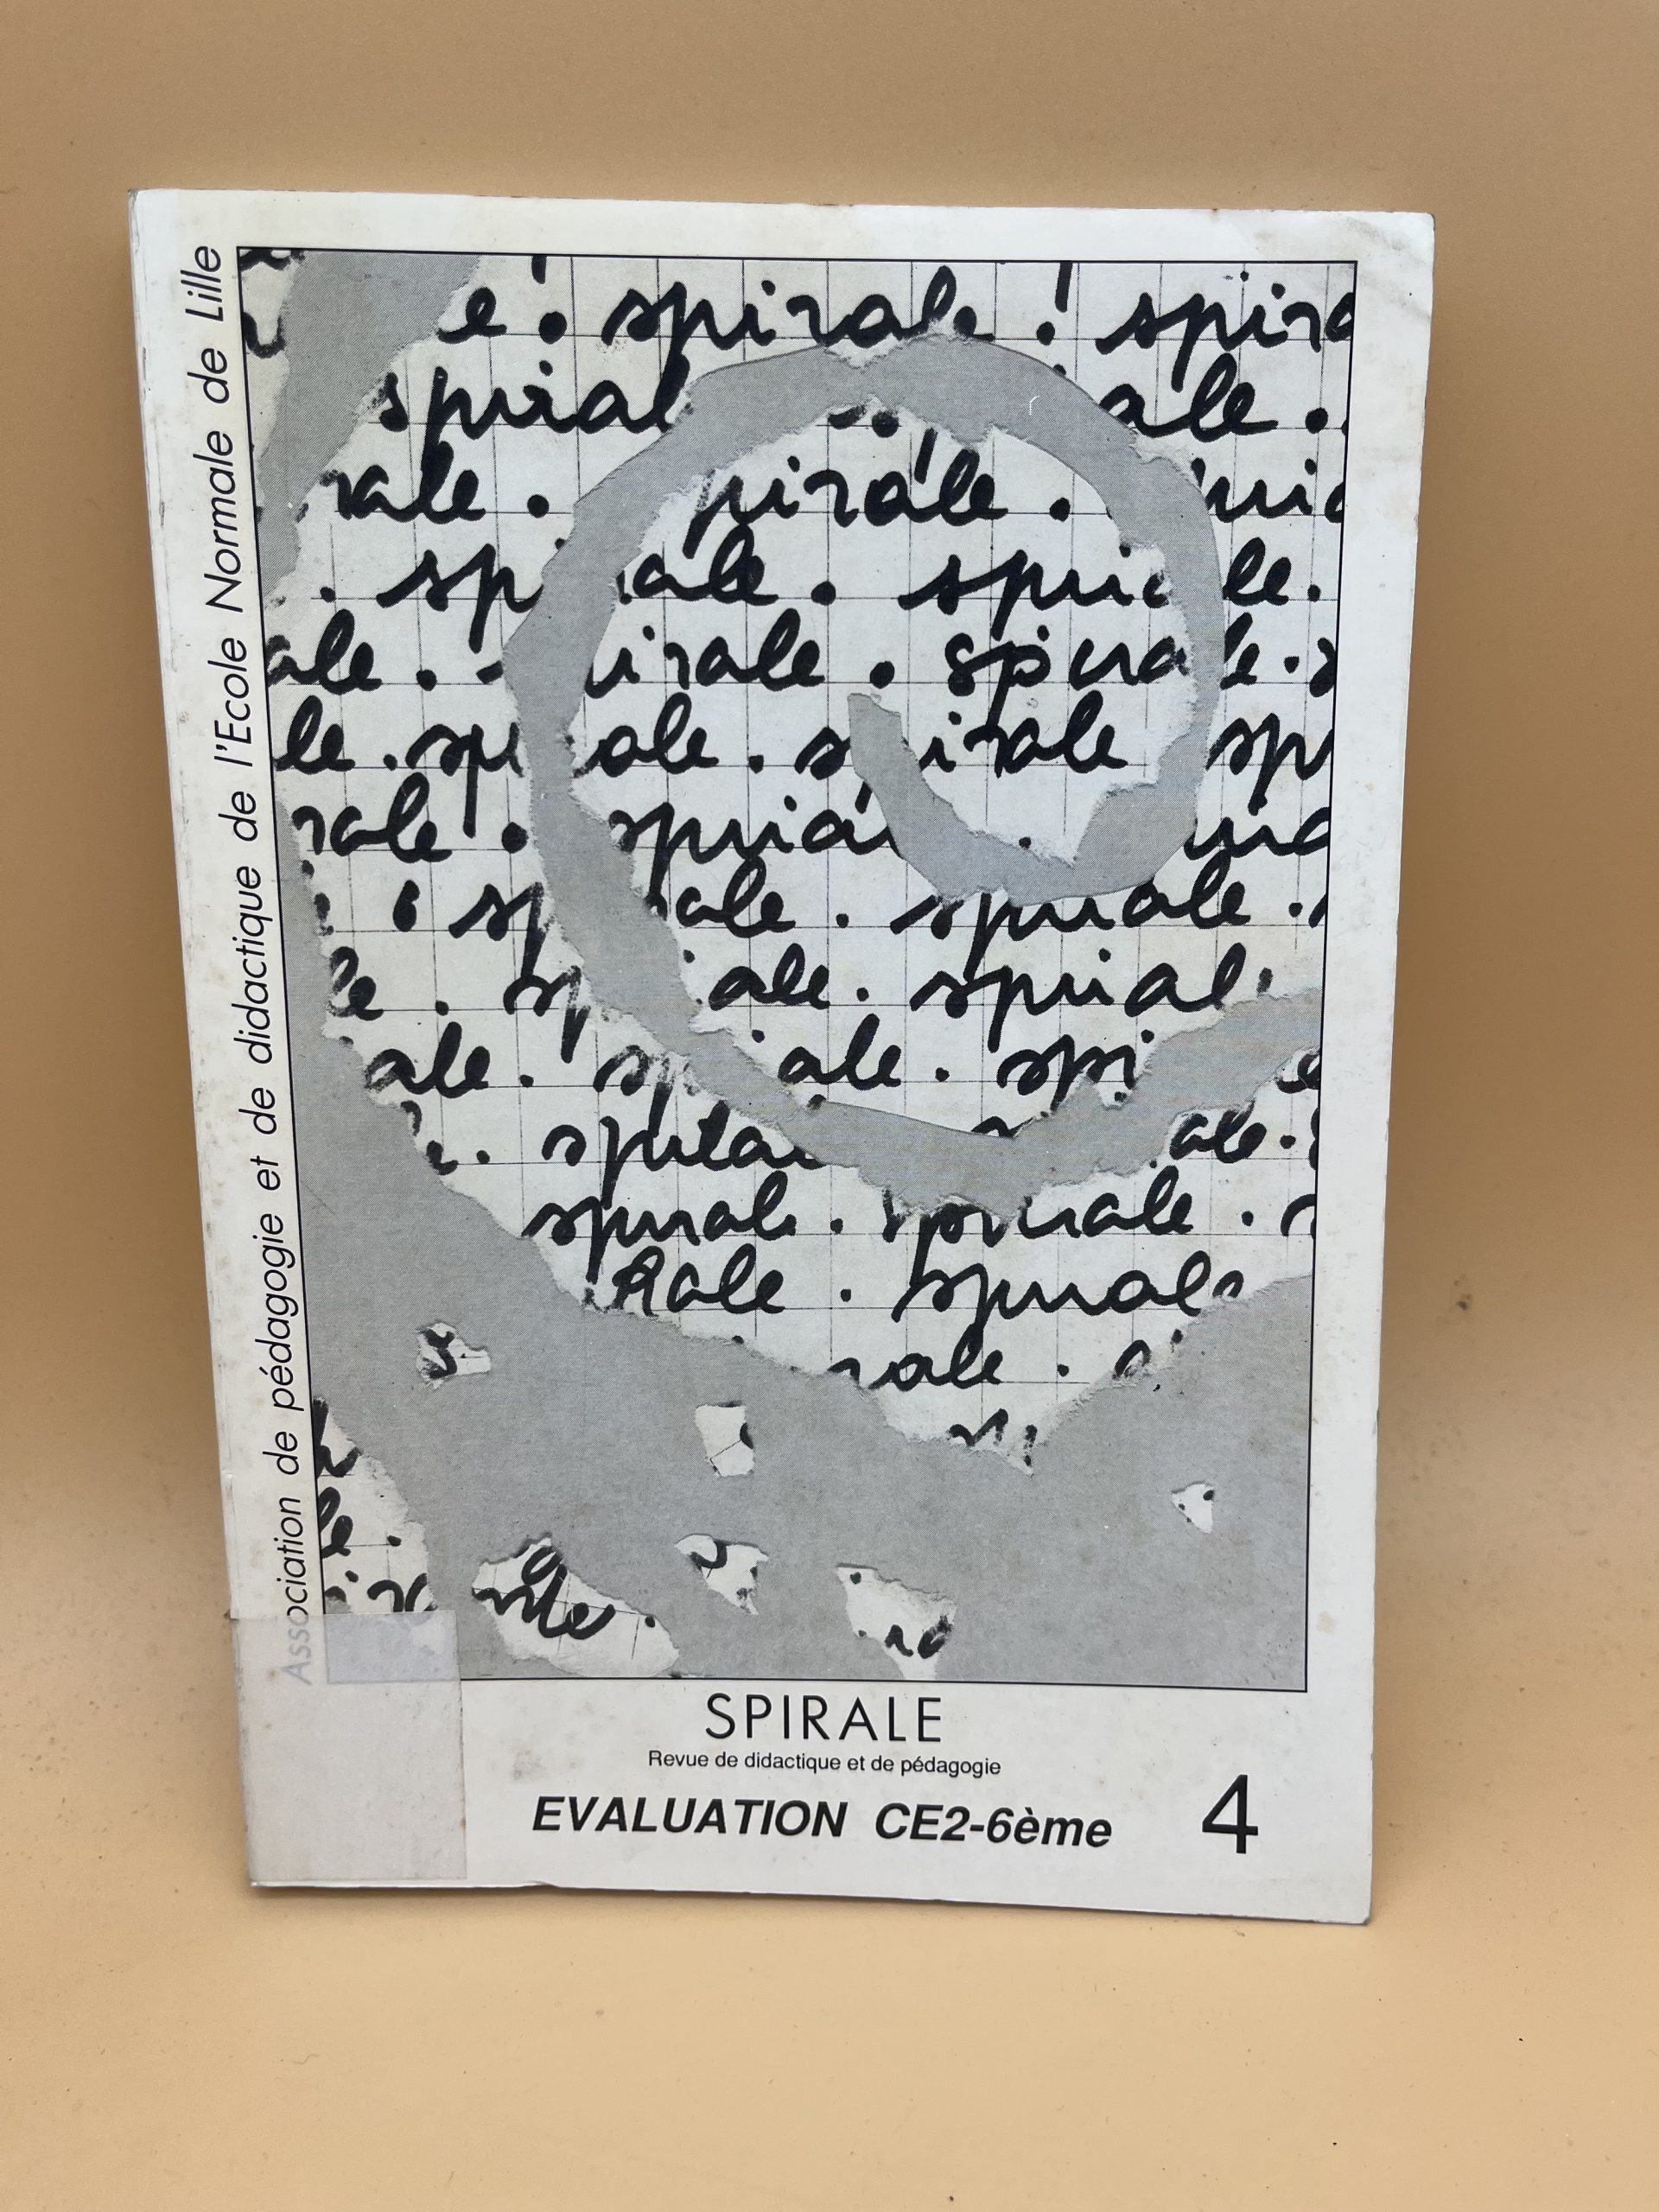 Association de pédagogie et de didactique de l'Ecole Normale de Lille
e. spirale. spira
spiral ale.
rale. pirale.
. sp ale. spi le.
ale. irale. spirale.
le. sp ale. s irale sp
rale. spiral
sp ale. spirale.
le. sp ale. spiral
ale. sp ale. spi e
spiral ale.
spirale. spirale.
Rale. spirale
rale.
SPIRALE
Revue de didactique et de pédagogie
EVALUATION CE2-6ème
4